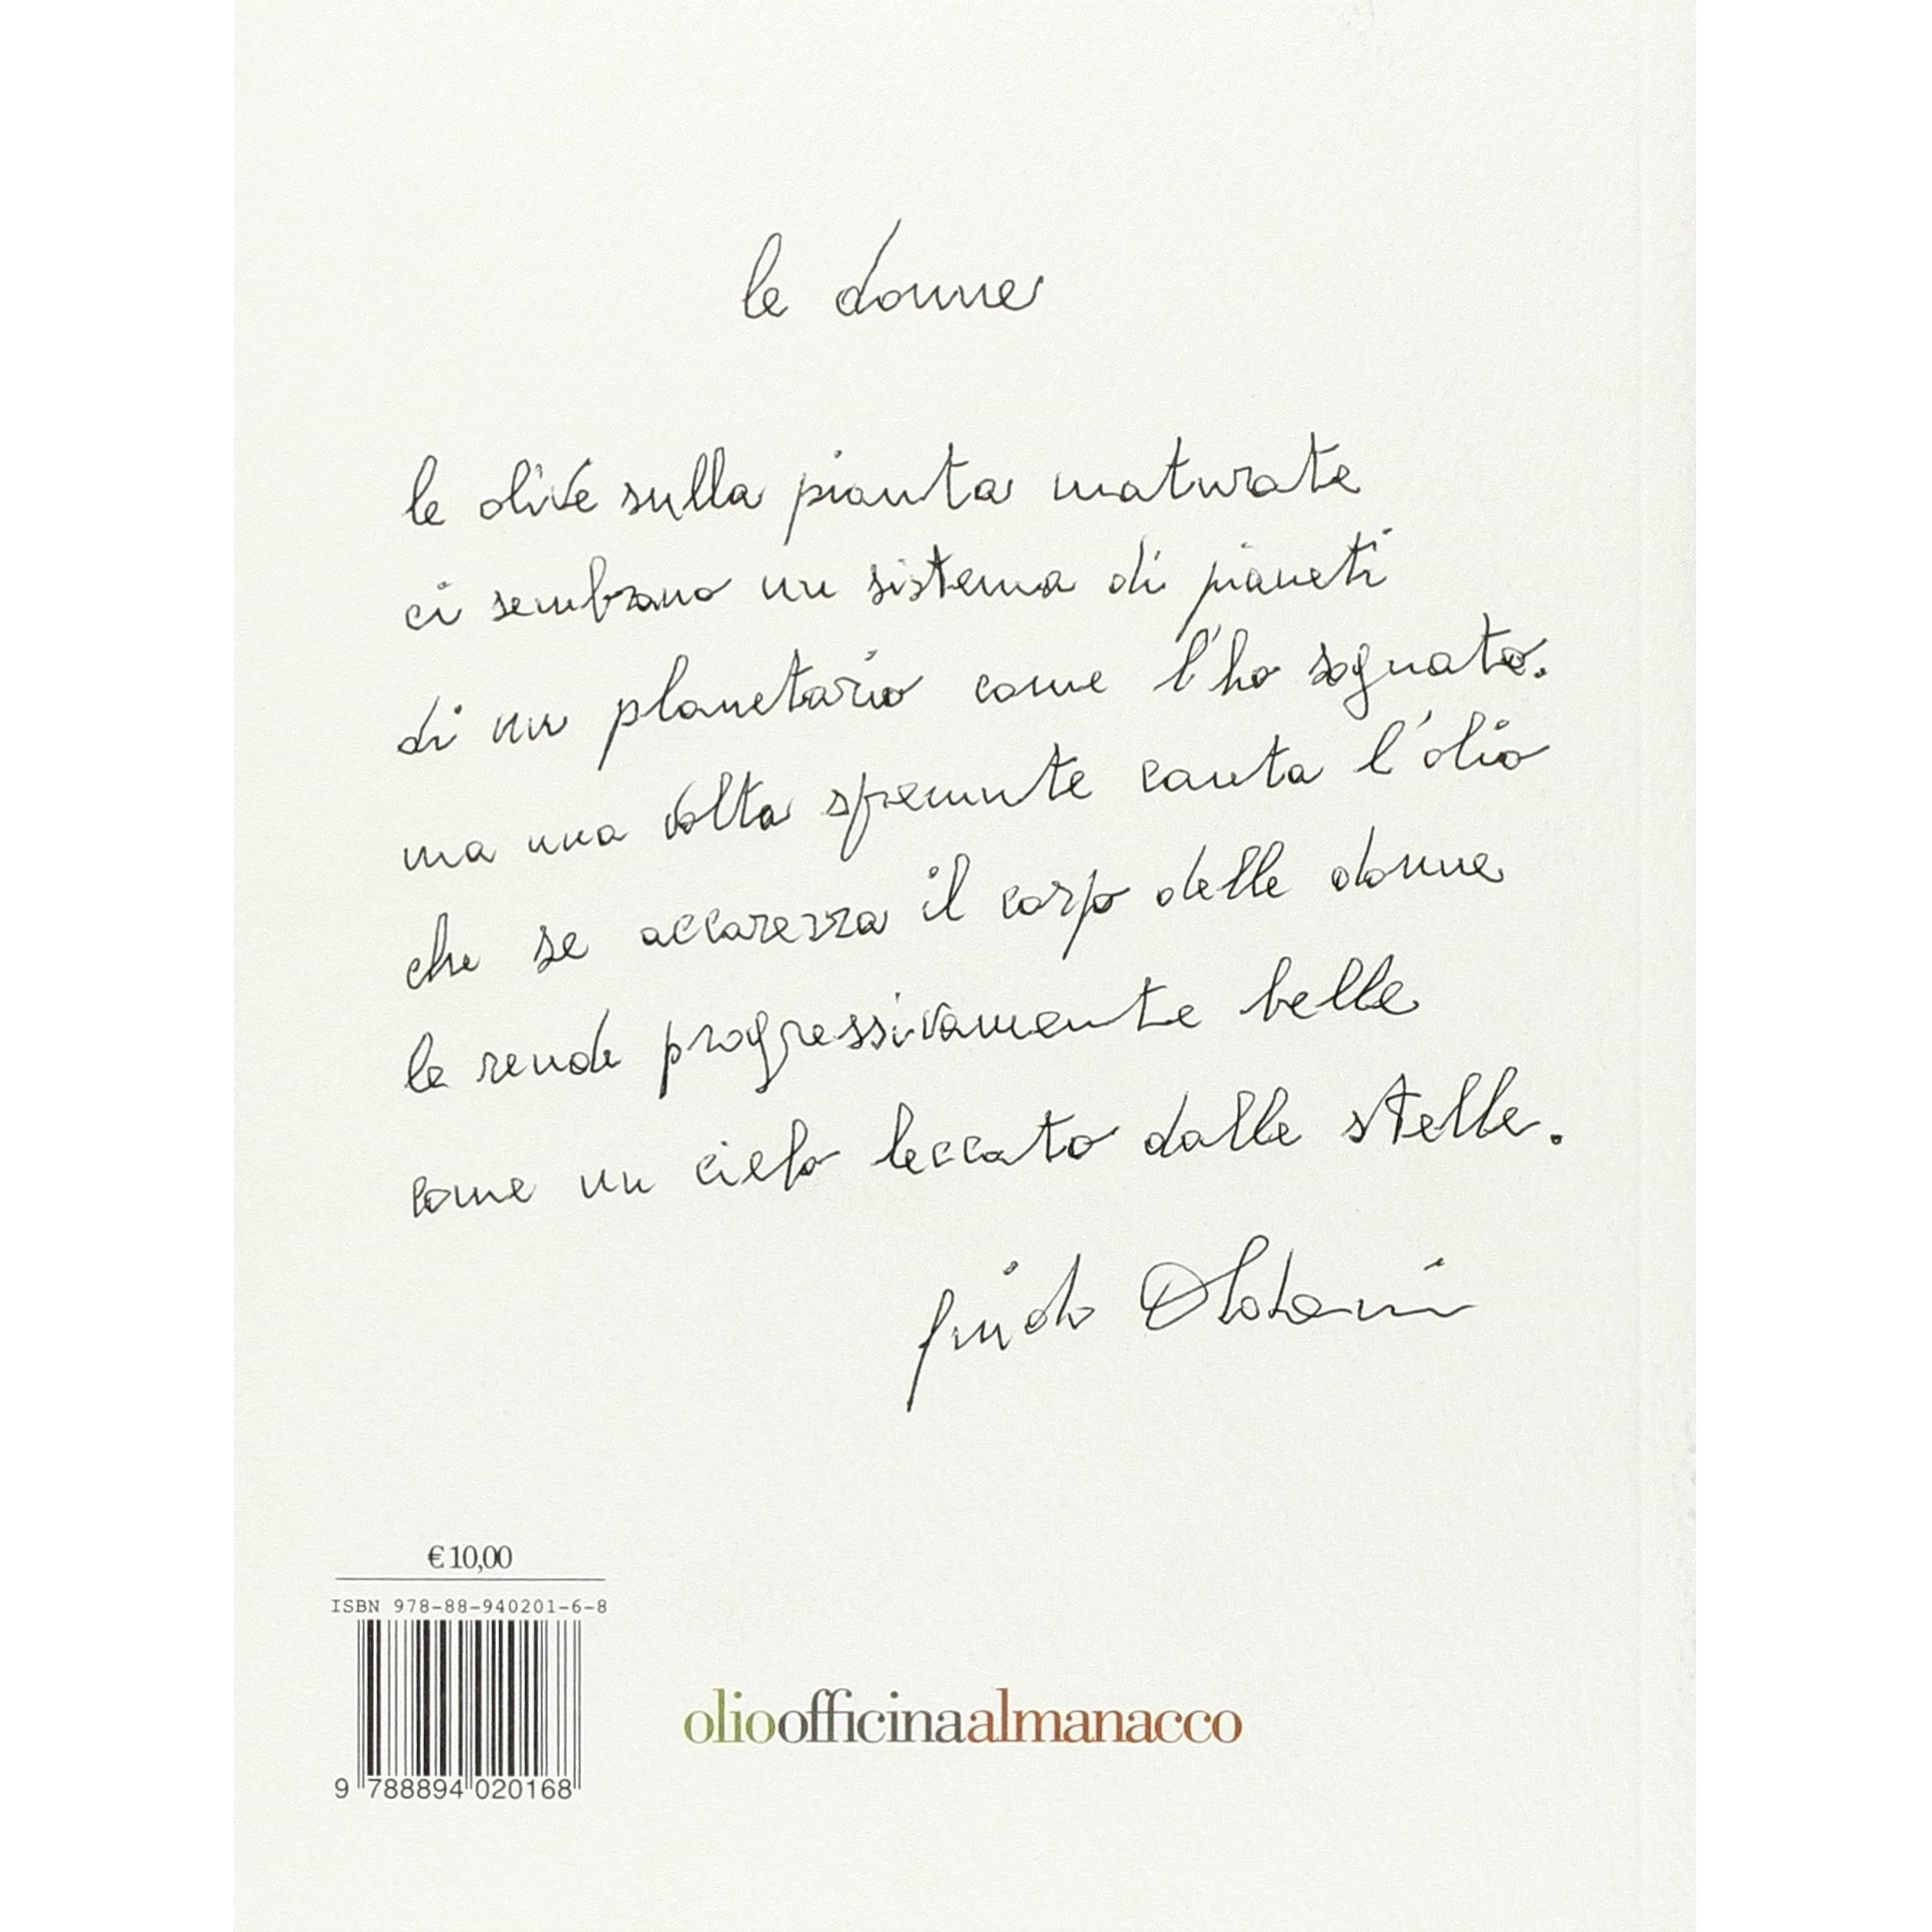 le donne
le olive sulla pianta maturate
ci sembrano un sistema di pianeti
di un planetario come l'ho sognato.
ma una volta spremute canta l'olio
che se accarezza il corpo delle donne
le rende progressivamente belle
come un cielo leccato dalle stelle.
guido Oldani
€ 10,00
ISBN 978-88-940201-6-8
9 788894 020168
olioofficinaalmanacco